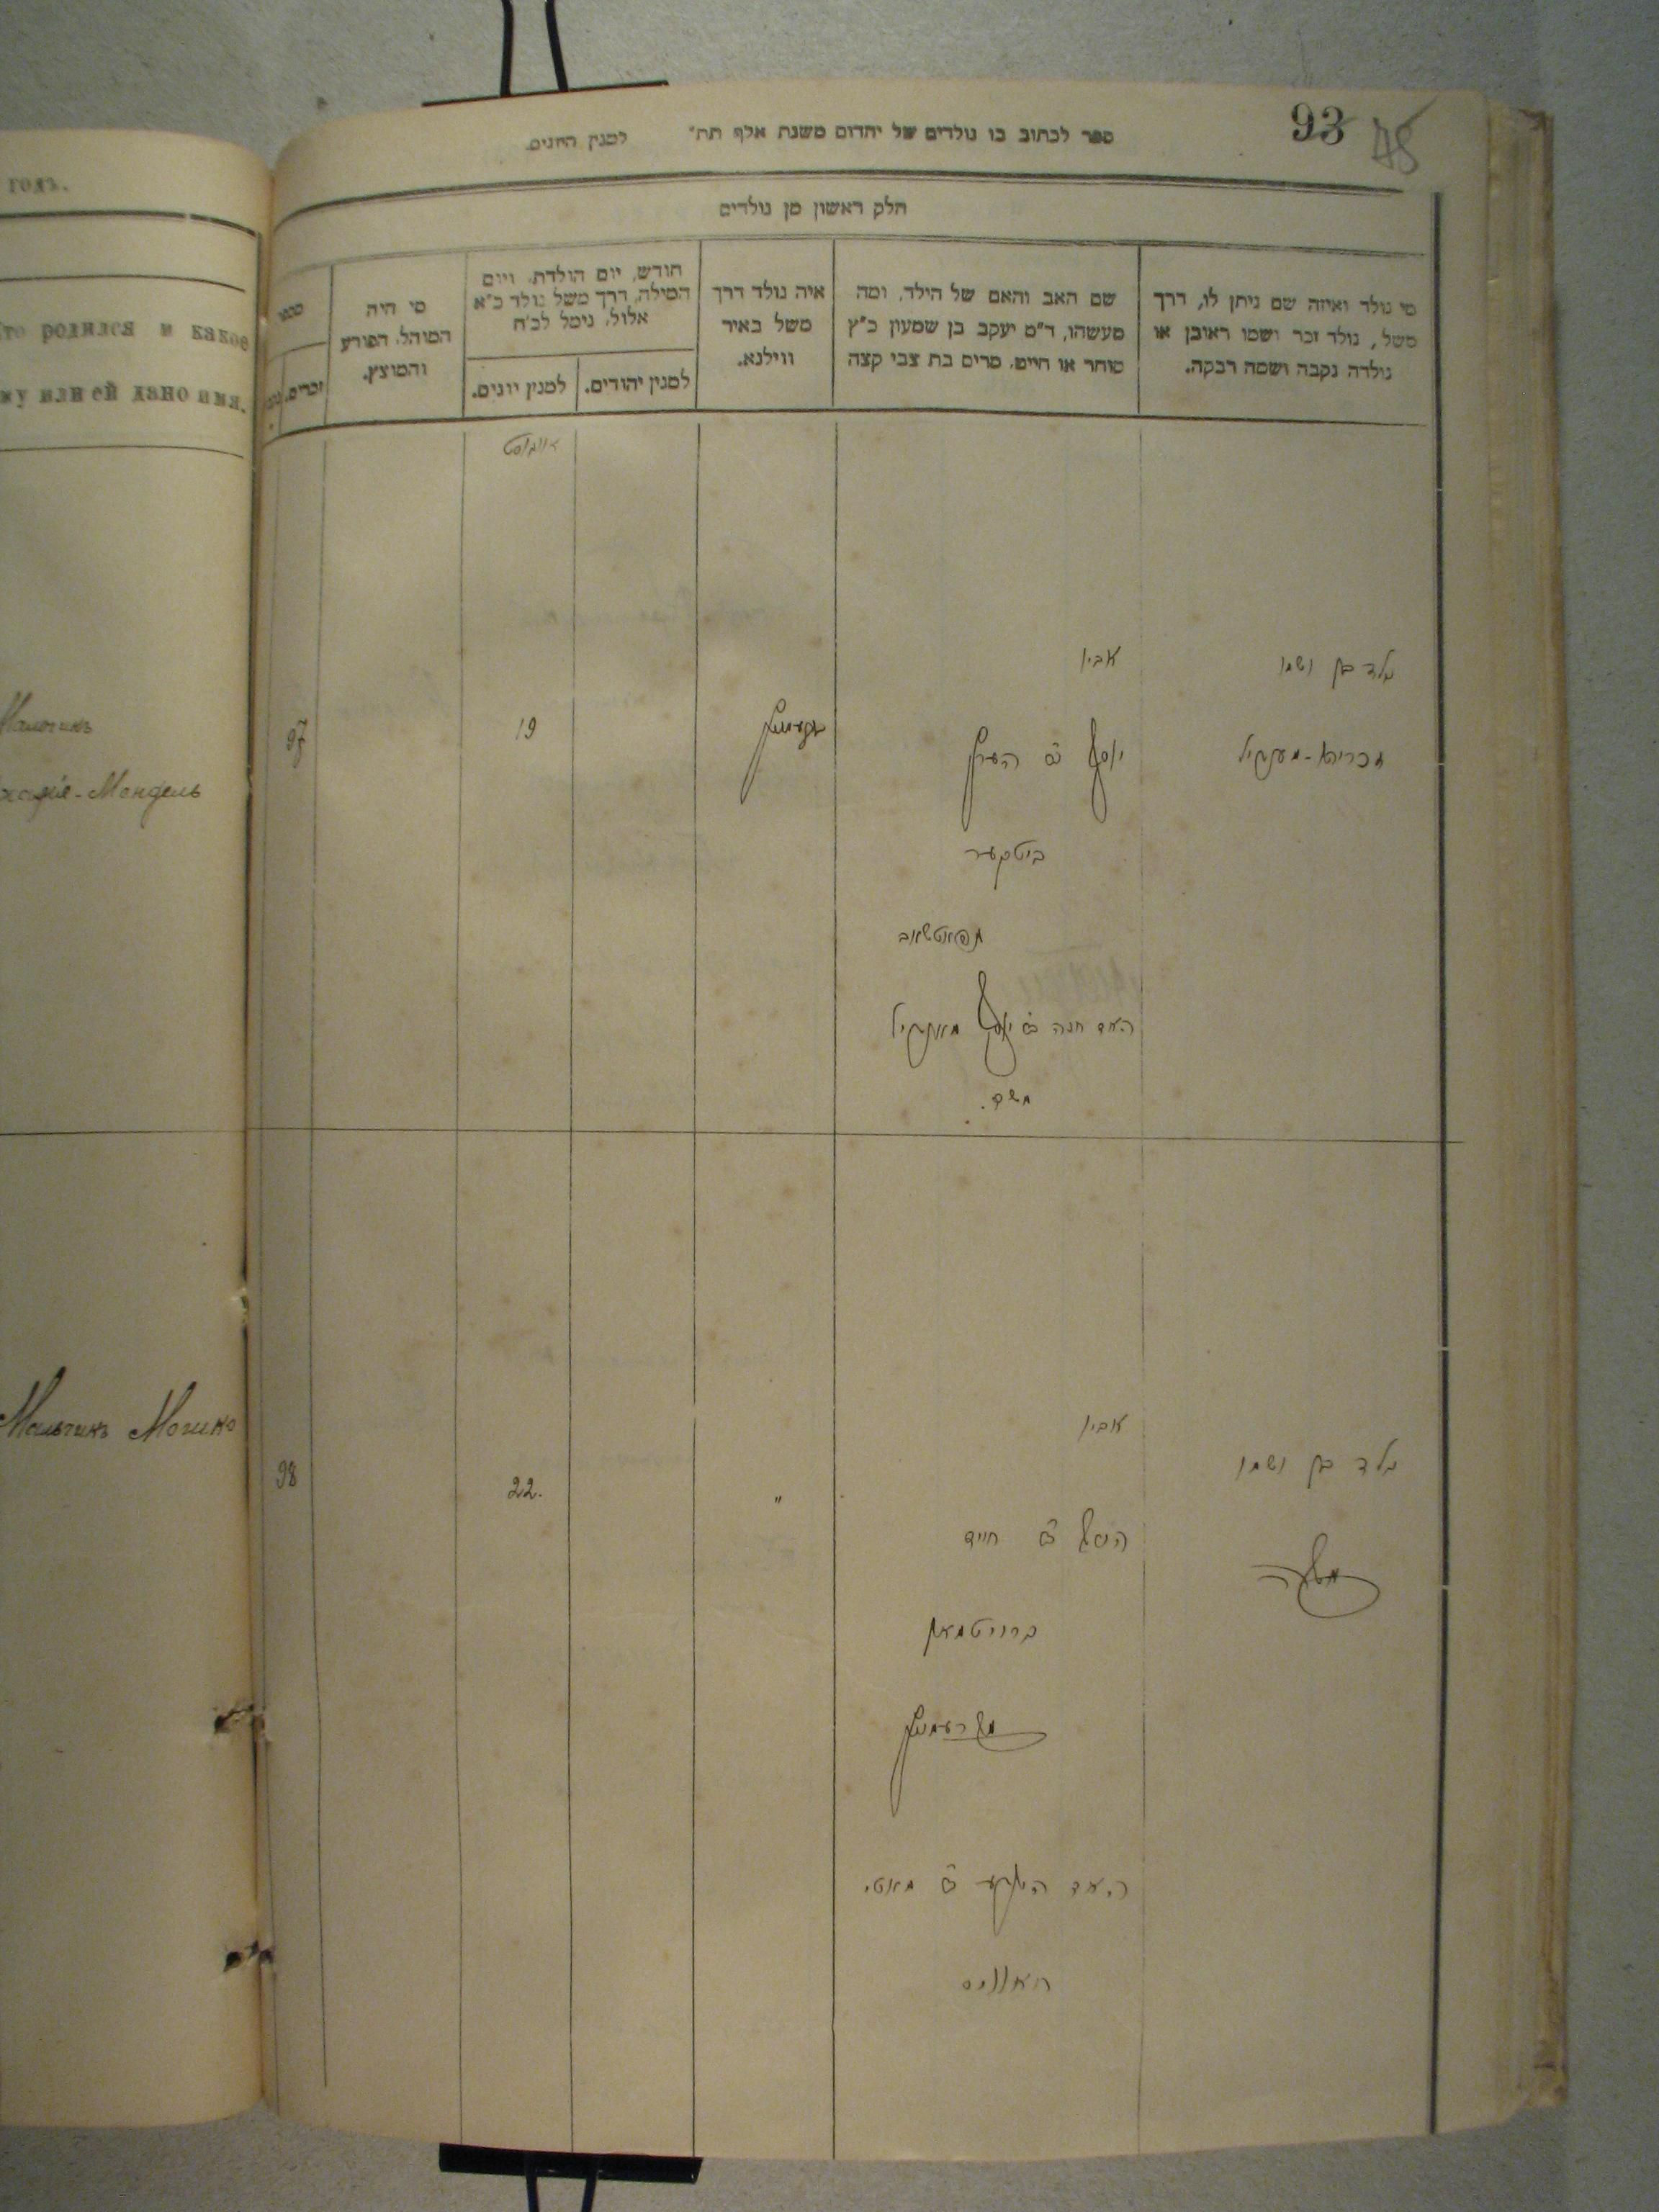 93
48
ספר לכתוב בו נולדים של יהדום משנת אלף תת״ למנין החנים.
חלק ראשון מן נולדים
מי נולד ואיזה שם ניתן לו, דרך
משל, נולד זכר ושמו ראובן או
נולדה נקבה ושמה רבקה.
שם האב והאם של הילד, ומה
מעשהו, ד״מ יעקב בן שמעון כ״ץ
סוחר או חייט, מרים בת צבי קצה
איה נולד דרך
משל באיר
ווילנא.
חודש, יום הולדת, ויום
המילה, דרך משל נולד כ״א
אלול, נימל לכ״ח
למנין יהודים.
למנין יונים.
מי היה
המוהל, הפורע
והמוצץ.
מספר
זכרים.
אויגוסט
נולד בן ושמו
זכריהו-מענדיל
אביו
יוסף ב״ר הערש
ביטקער
האם חנה ב״ר יוסף
19
97
נולד בן ושמו
משה
אביו
ב״ר חיים
ברויטמאן
האם
ב״ר מאטי
"
22.
98
годъ.
то родился и какое
му или ей дано имя.
Мальчикъ
харія-Мендель
Мальчикъ Мошко